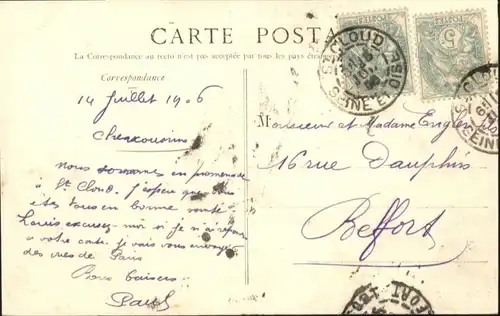 CARTE POSTALE
La Correspondance au recto n'est pas acceptée par tous les pays étrangers
Correspondance
14 Juillet 1906
Cher cousin
nous sommes en promenade
à St Cloud. J'espère que vous
êtes tous en bonne santé
Louis excusez moi si je n'ai répondu
à votre carte. je vais vous envoyer
des vues de Paris
Bons baisers
Paul
Monsieur et Madame Engler
16 rue Dauphin
Belfort
ST CLOUD
SEINE ET OISE
POSTES
5
ST CLOUD
SEINE
BELFORT